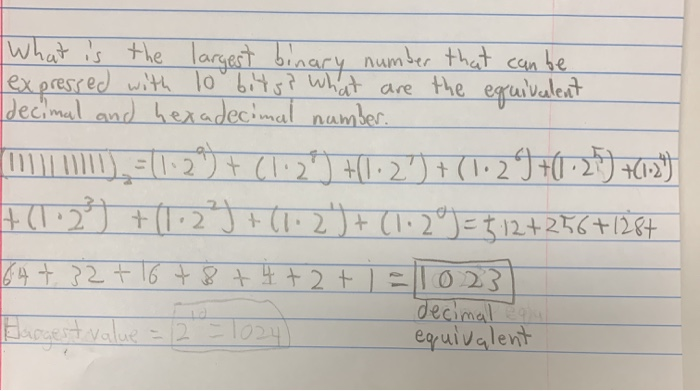 What is the largest binary number that can be
expressed with 10 bits? What are the equivalent
decimal and hexadecimal number.
(1111111111)₂ = (1·2⁹) + (1·2⁸) + (1·2⁷) + (1·2⁶) + (1·2⁵) + (1·2⁴)
+ (1·2³) + (1·2²) + (1·2¹) + (1·2⁰) = 512 + 256 + 128 +
64 + 32 + 16 + 8 + 4 + 2 + 1 = 1023
decimal
largest value = 2¹⁰ = 1024
equivalent